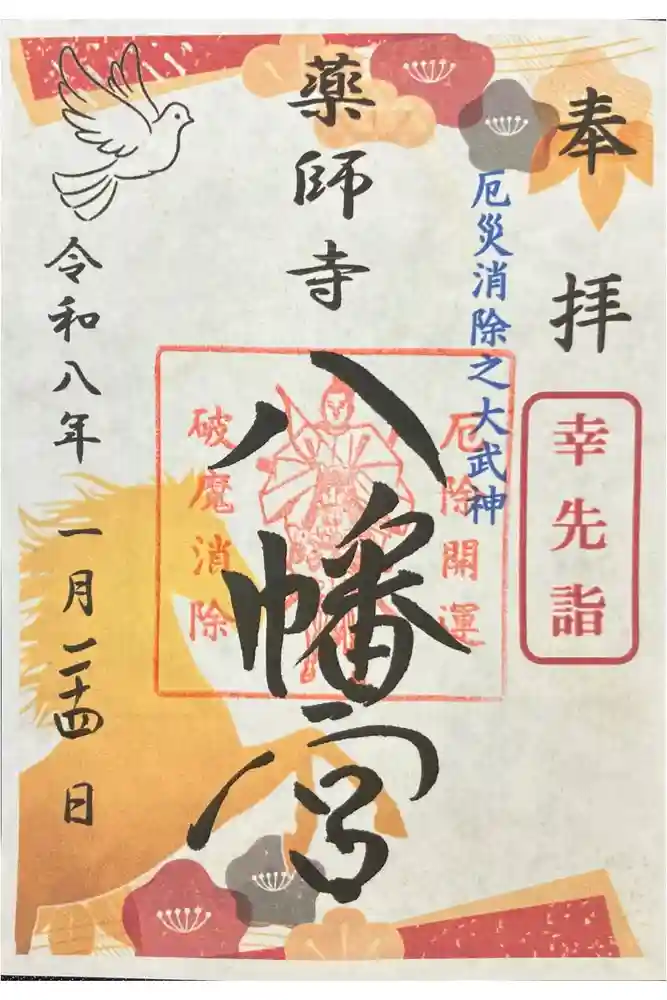 奉拝
幸先詣
厄災消除之大武神
薬師寺
八幡宮
厄除開運
破魔消除
令和八年
一月二十四日